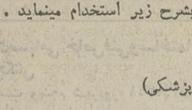 بشرح زیر استخدام مینماید .
پزشکی)